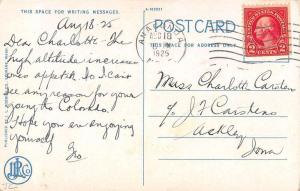 THIS SPACE FOR WRITING MESSAGES.
Aug 18 25
Dear Charlotte - The
high altitude increases
appetite. So I can't
see any reason for your
going to Colorado.
Hope you are enjoying
yourself
Geo.
POSTCARD
THIS SPACE FOR ADDRESS ONLY.
AUG 18
1925
2 CENTS 2
Miss Charlotte Carsten
c/o J F Carstens
Ackley
Iowa